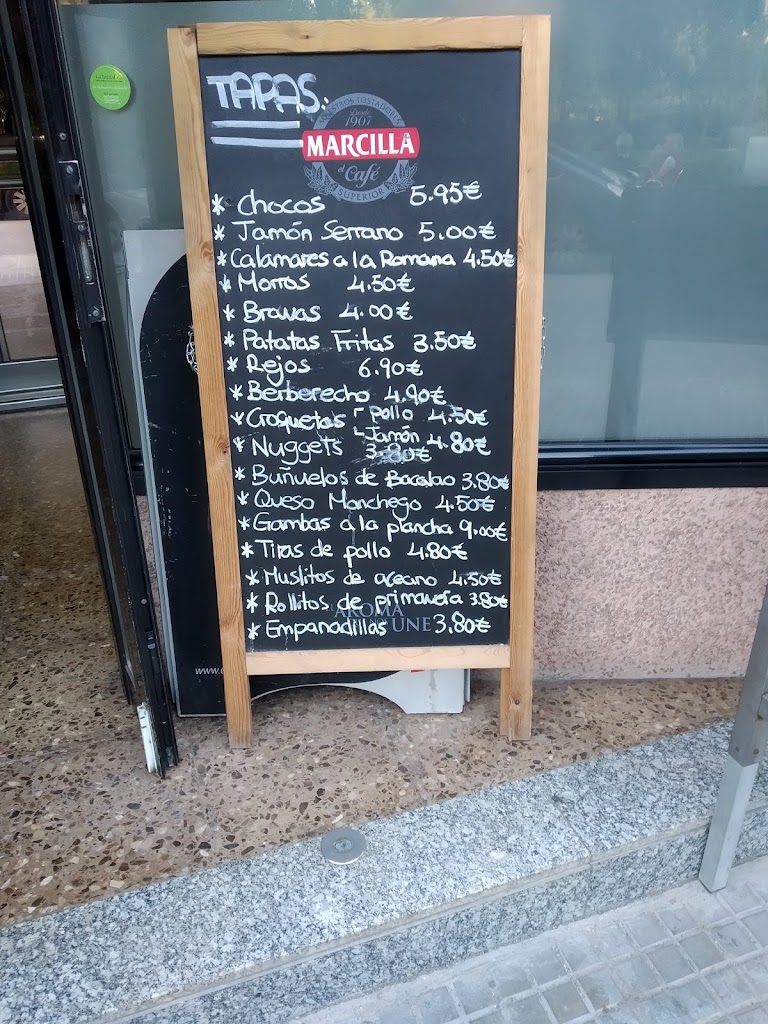 TAPAS:
NUESTROS TOSTADORES
Desde
1907
MARCILLA
el Café
SUPERIOR
* Chocos 5.95€
* Jamón Serrano 5.00€
* Calamares a la Romana 4.50€
* Morros 4.50€
* Bravas 4.00€
* Patatas Fritas 3.50€
* Rejos 6.90€
* Berberecho 4.90€
* Croquetas Pollo 4.50€
Jamón 4.80€
* Nuggets 3.80€
* Buñuelos de Bacalao 3.80€
* Queso Manchego 4.50€
* Gambas a la plancha 9.00€
* Tiras de pollo 4.80€
* Muslitos de oceano 4.50€
* Rollitos de primavera 3.80€
AROMA
* Empanadillas 3.80€
UNE
www.